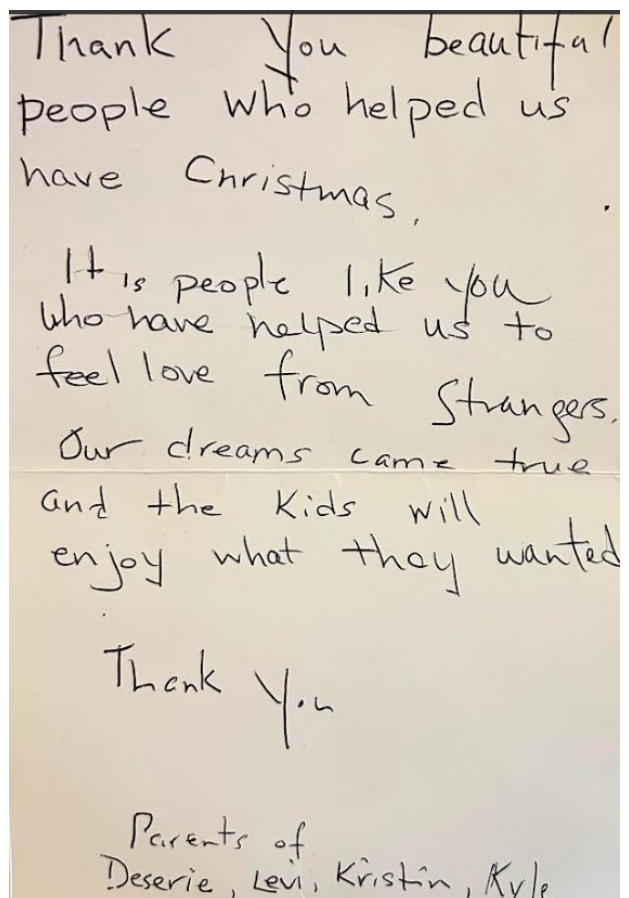 Thank you beautiful
people who helped us
have Christmas.
It is people like you
who have helped us to
feel love from strangers.
Our dreams came true
and the kids will
enjoy what they wanted
Thank you
Parents of
Deserie, Levi, Kristin, Kyle